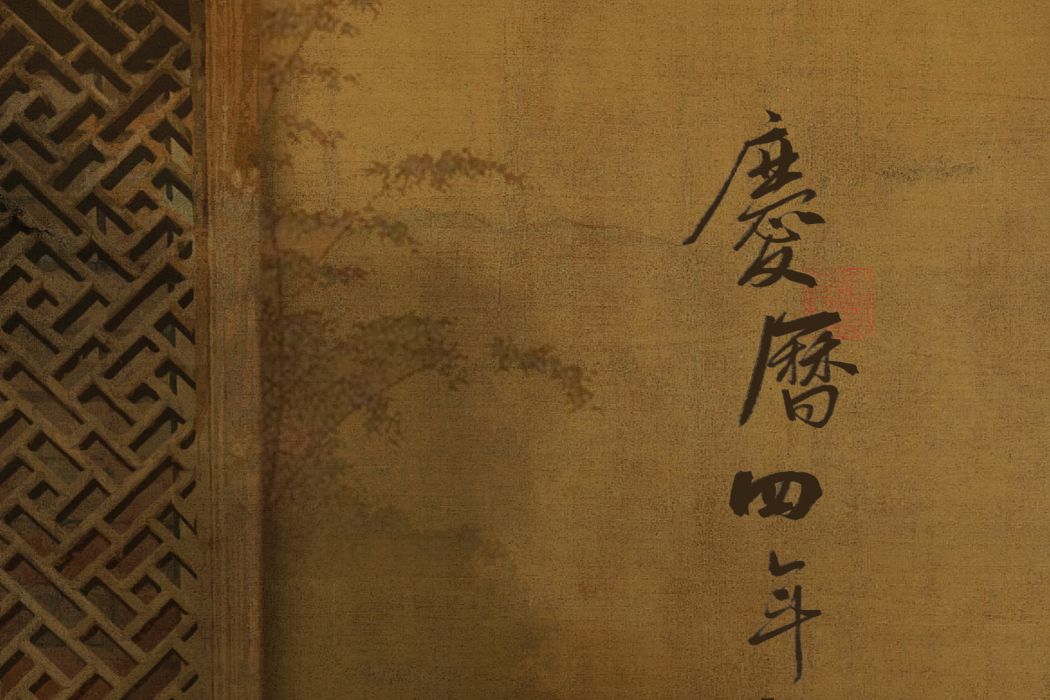 慶曆四年